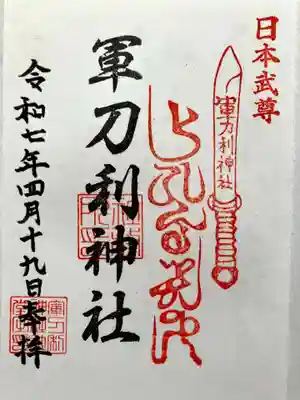 日本武尊
軍刀利神社
軍刀利神社
令和七年四月十九日奉拝